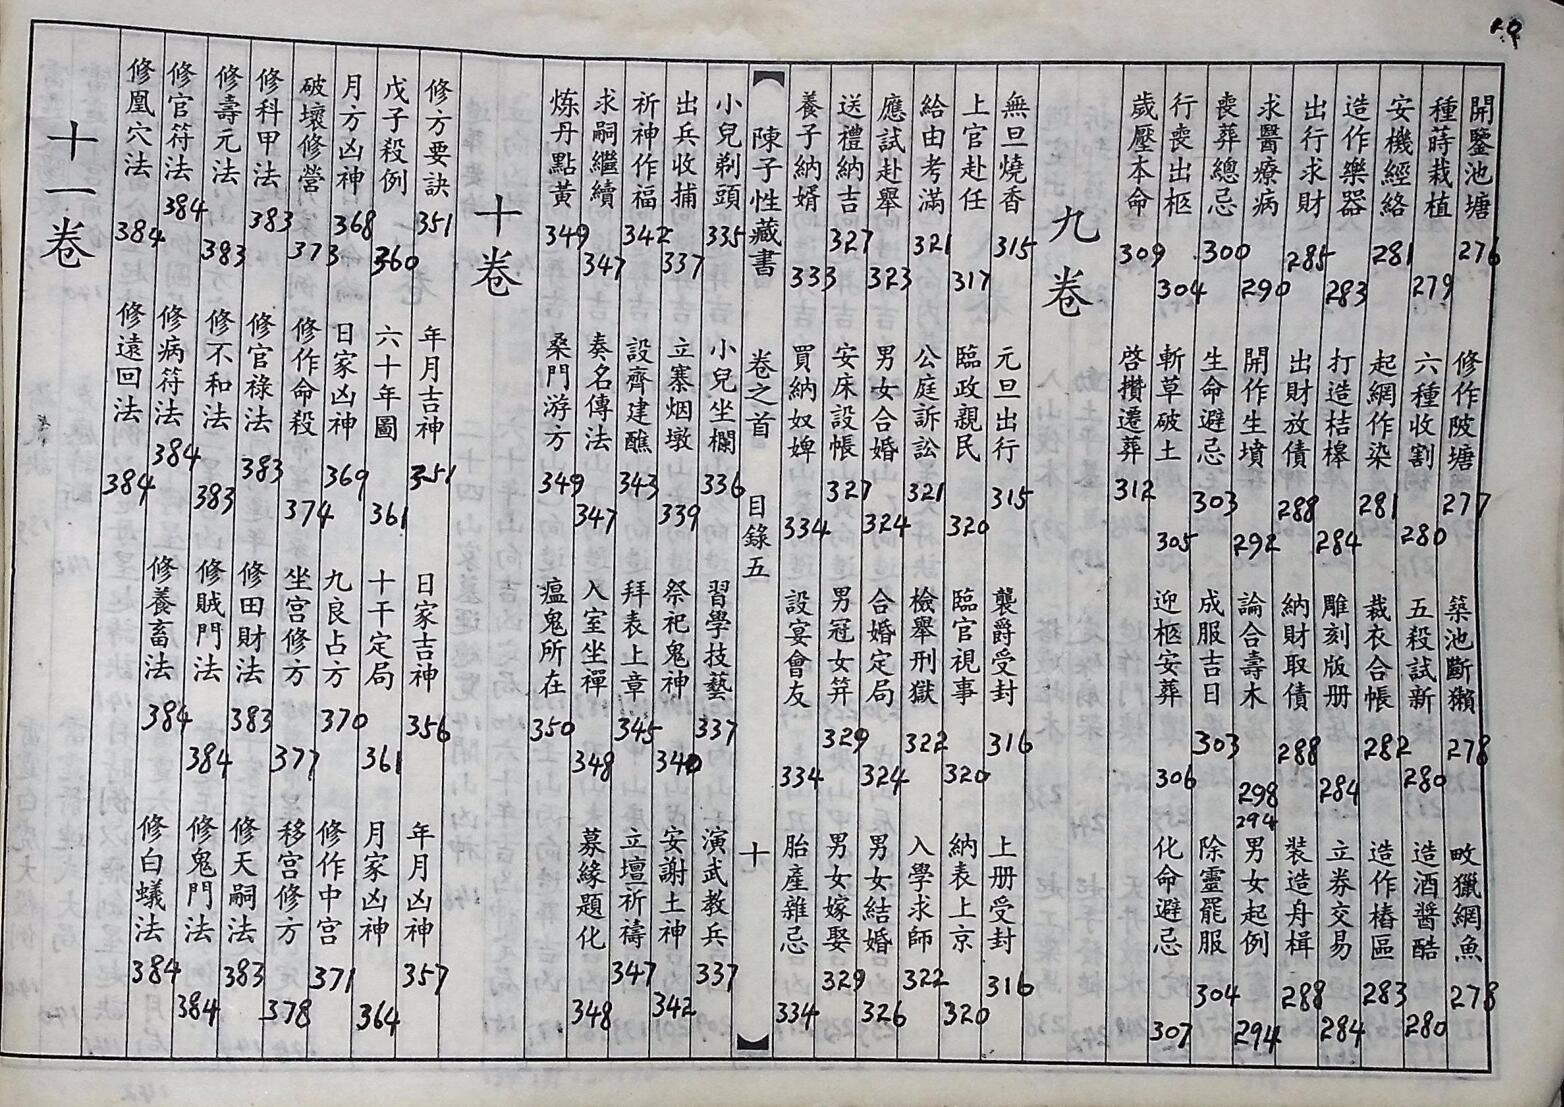 開鑿池塘 276 修作陂塘 277 築池斷獺 278 畋獵網魚 278
種蒔栽植 279 六種收割 280 五穀試新 280 造酒醬酷 280
安機經絡 281 起網作染 281 裁衣合帳 282 造作樁區 283
造作樂器 283 打造桔槔 284 雕刻版册 284 立券交易 284
出行求財 285 出財放債 288 納財取債 288 裝造舟楫 288
求醫療病 290 開作生墳 292 論合壽木 298 294 男女起例 294
喪葬總忌 300 生命避忌 303 成服吉日 303 除靈罷服 304
行喪出柩 304 斬草破土 305 迎柩安葬 306 化命避忌 307
歲壓本命 309 啓攢遷葬 312
九卷
無旦燒香 315 元旦出行 315 襲爵受封 316 上册受封 316
上官赴任 317 臨政親民 320 臨官視事 320 納表上京 320
給由考滿 321 公庭訴訟 321 檢舉刑獄 322 入學求師 322
應試赴舉 323 男女合婚 324 合婚定局 324 男女結婚 326
送禮納吉 327 安床設帳 327 男冠女筓 329 男女嫁娶 329
養子納婿 333 買納奴婢 334 設宴會友 334 胎產雜忌 334
陳子性藏書 卷之首 目錄五 十
小兒剃頭 335 小兒坐欄 336 習學技藝 337 演武教兵 337
出兵收捕 337 立寨烟墩 339 祭祀鬼神 340 安謝土神 342
祈神作福 342 設齊建醮 343 拜表上章 345 立壇祈禱 347
求嗣繼續 347 奏名傳法 347 入室坐禪 348 募緣題化 348
炼丹點黃 349 桑門游方 349 瘟鬼所在 350
十卷
修方要訣 351 年月吉神 351 日家吉神 356 年月凶神 357
戊子殺例 360 六十年圖 361 十干定局 361 月家凶神 364
月方凶神 368 日家凶神 369 九良占方 370 修作中宫 371
破壞修營 373 修作命殺 374 坐宫修方 377 移宫修方 378
修科甲法 383 修官祿法 383 修田財法 383 修天嗣法 383
修壽元法 383 修不和法 383 修賊門法 384 修鬼門法 384
修官符法 384 修病符法 384 修養畜法 384 修白蟻法 384
修凰穴法 384 修遠回法 384
十一卷